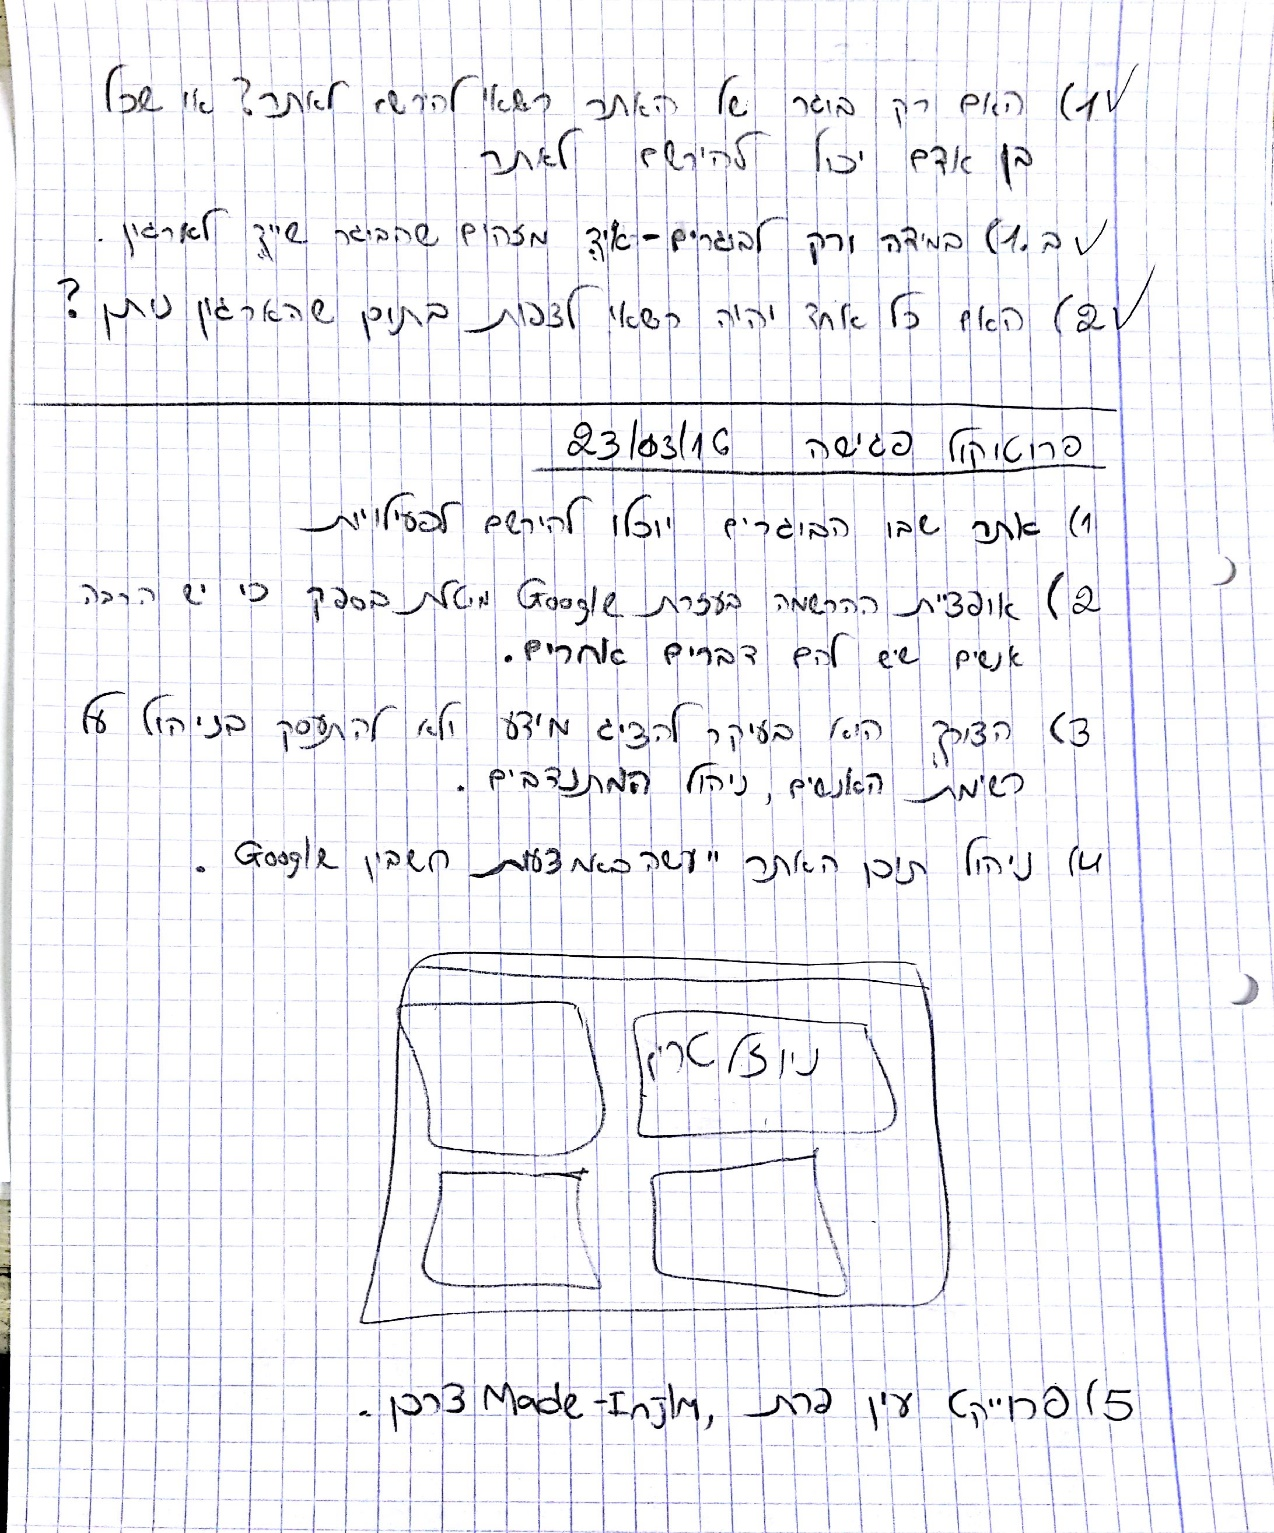 1) האם רק בוגר של האתר רשאי להירשם לאתר? או שכל
בן אדם יכול להירשם לאתר
ב.1) במידה ורק לבוגרים - איך מזהים שהבוגר שייך לארגון.
2) האם כל אחד יהיה רשאי לצפות בתוכן שהארגון נותן?
פרוטוקול פגישה 23/03/16
1) אתר שבו הבוגרים יוכלו להירשם לפעילויות
2) אופציית ההרשמה בעזרת Google מוטלת בספק כי יש הרבה
אנשים שיש להם דברים אחרים.
3) הצורך היא בעיקר להציג מידע ולא להתעסק בניהול על
רשימת האנשים, ניהול המתנדבים.
4) ניהול תוכן האתר ייעשה באמצעות חשבון Google.
ניוזלטרים
5) פרוייקט עין פרת, Made-InJlm צרכן.